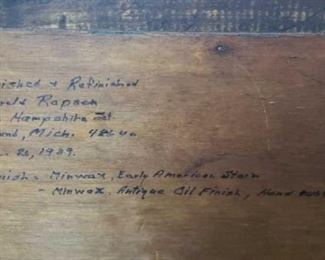 ished & Refinished
Rapson
Hampshire St.
Mich. 486
20, 1989.
ish - Minwax, Early American Stain
- Minwax Antique Oil Finish, Hand